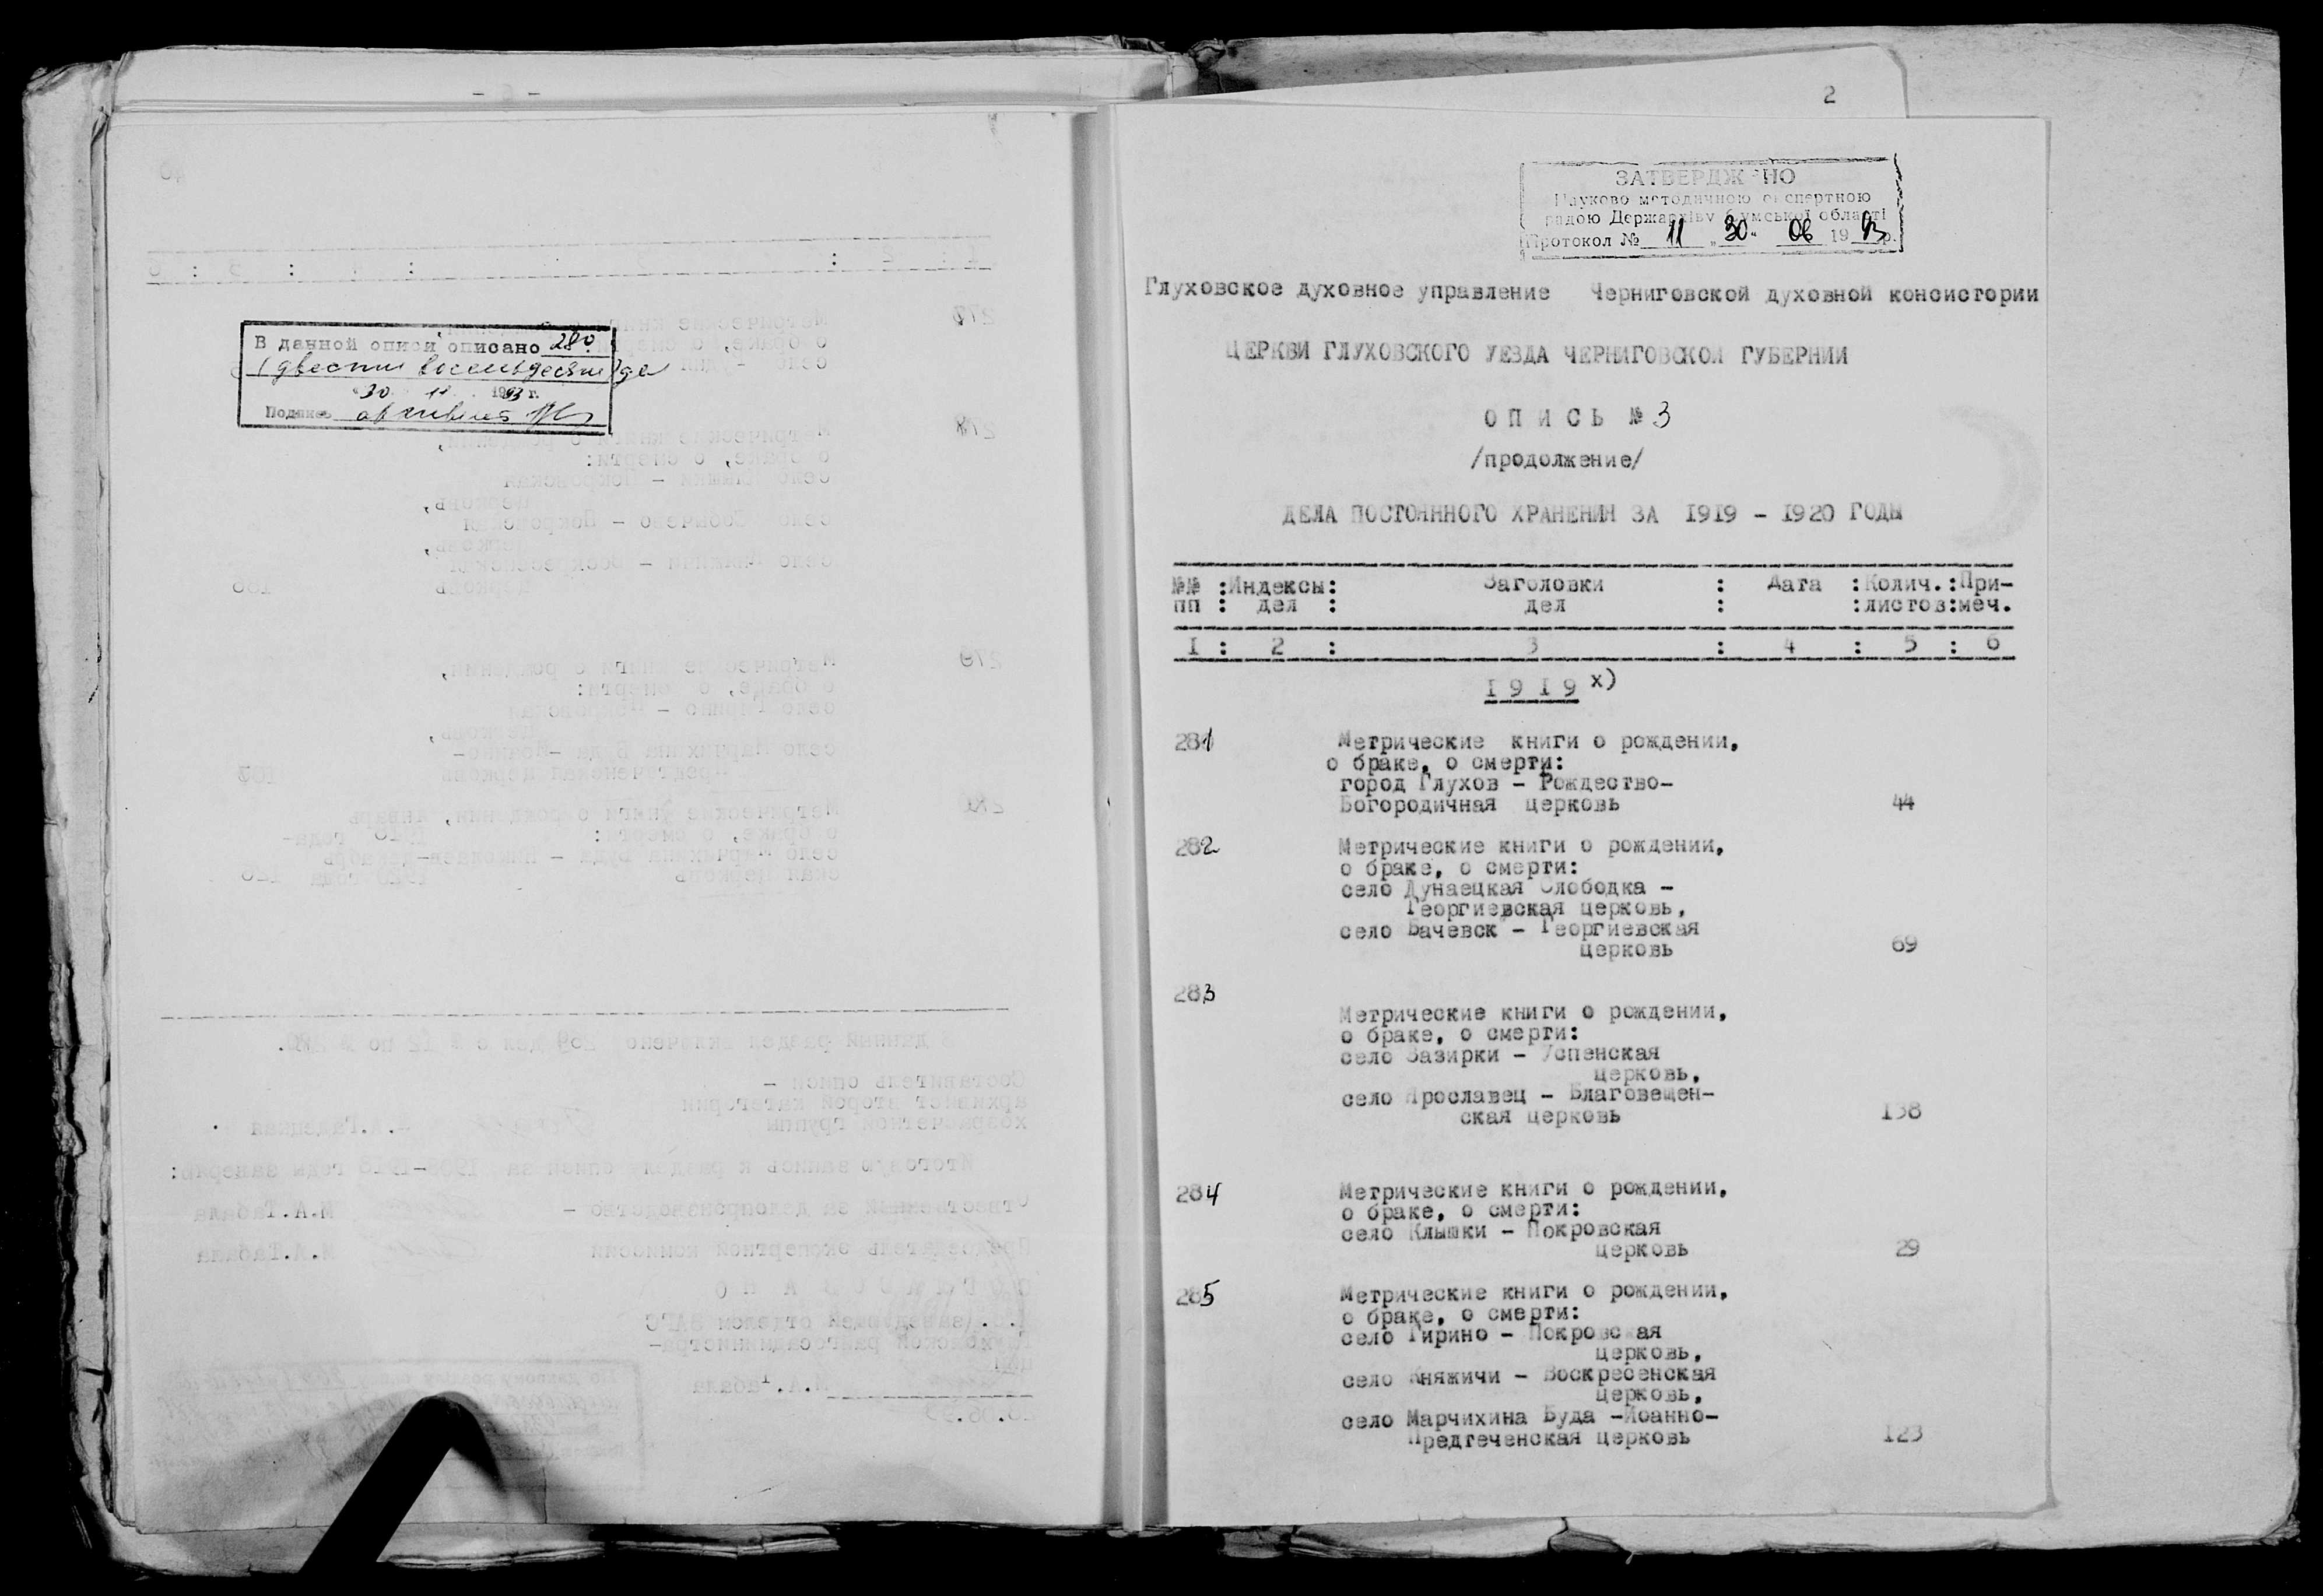 - 6 -
В данной описи описано 280
(двести восемьдесят) де
"30. 11. 1993 г.
Подпись архивист
2
ЗАТВЕРДЖЕНО
Науково методичною експертною
радою Держархіву Сумської області
Протокол № 11 „30“ 06 1993 р.
Глуховское духовное управление Черниговской духовной консистории
ЦЕРКВИ ГЛУХОВСКОГО УЕЗДА ЧЕРНИГОВСКОЙ ГУБЕРНИИ
О П И С Ь № 3
/продолжение/
ДЕЛА ПОСТОЯННОГО ХРАНЕНИЯ ЗА 1919 - 1920 ГОДЫ
№№ :Индексы: Заголовки : Дата :Колич.:При-
пп : дел : дел : :листов:меч.
1 : 2 : 3 : 4 : 5 : 6
1 9 1 9 х)
281 Метрические книги о рождении,
о браке, о смерти:
город Глухов - Рождество-
Богородичная церковь 44
282 Метрические книги о рождении,
о браке, о смерти:
село Дунаецкая Слободка -
Георгиевская церковь,
село Бачевск - Георгиевская
церковь 69
283
Метрические книги о рождении,
о браке, о смерти:
село Зазирки - Успенская
церковь,
село Ярославец - Благовещен-
ская церковь 138
284 Метрические книги о рождении,
о браке, о смерти:
село Клышки - Покровская
церковь 29
285 Метрические книги о рождении,
о браке, о смерти:
село Гирино - Покровская
церковь,
село Княжичи - Воскресенская
церковь,
село Марчихина Буда -Иоанно-
Предтеченская церковь 123